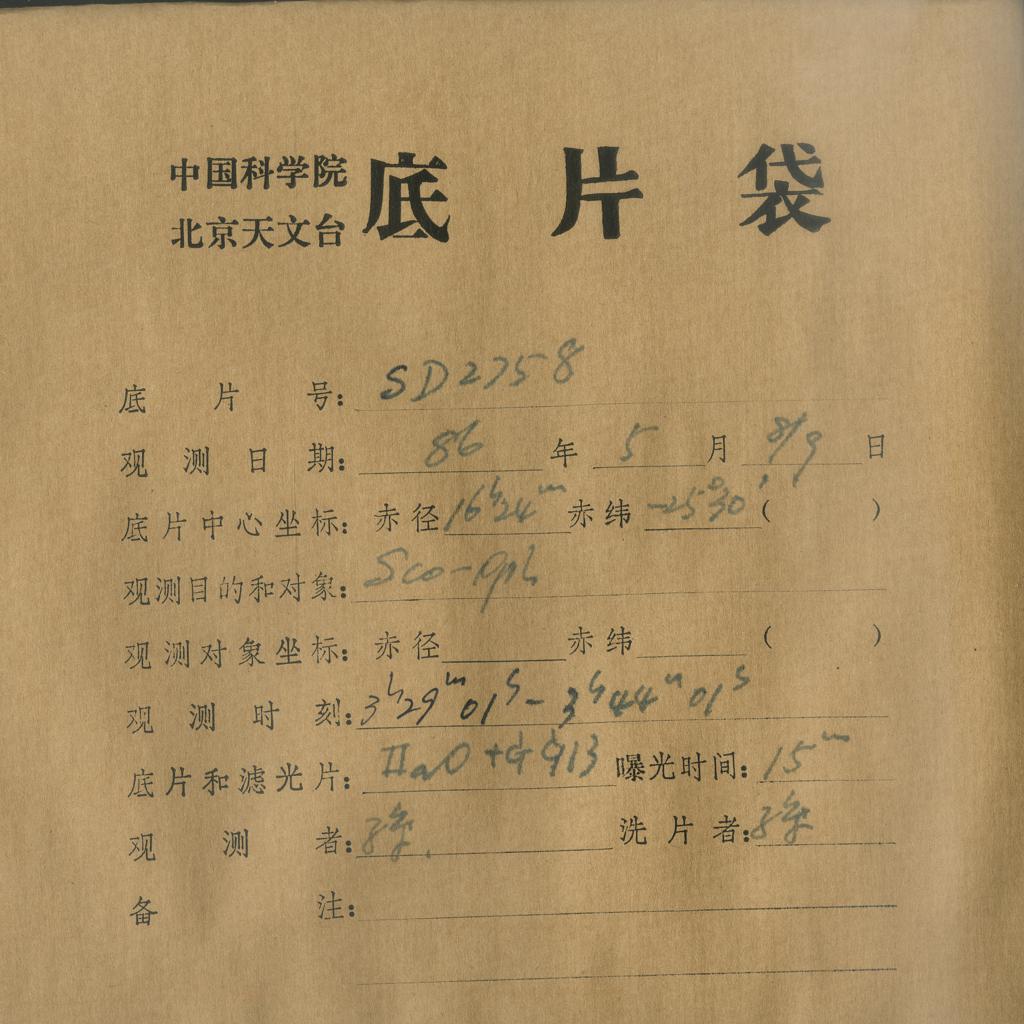 中国科学院
北京天文台 底片袋
底片号：SD2758
观测日期：86年5月8/9日
底片中心坐标：赤径16h24m赤纬-25°30′（ ）
观测目的和对象：Sco-Oph
观测对象坐标：赤径 赤纬 （ ）
观测时刻：3h29m01s-3h44m01s
底片和滤光片：IIaO+GG13 曝光时间：15m
观测者： 洗片者：
备注：